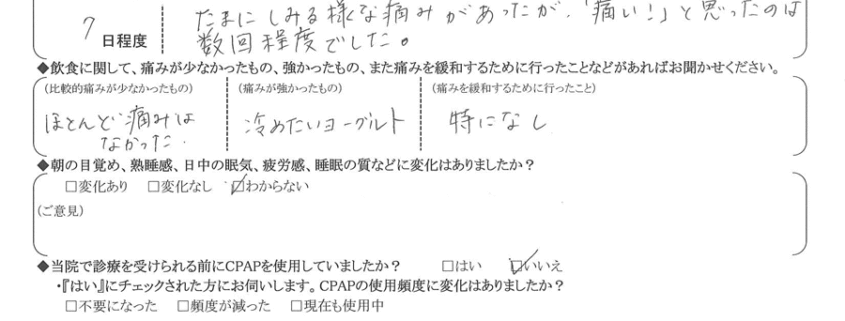 たまにしみる様な痛みがあったが、「痛い!」と思ったのは
7 日程度 数回程度でした。
◆飲食に関して、痛みが少なかったもの、強かったもの、また痛みを緩和するために行ったことなどがあればお聞かせください。
(比較的痛みが少なかったもの) (痛みが強かったもの) (痛みを緩和するために行ったこと)
ほとんど痛みは 冷めたいヨーグルト 特になし
なかった.
◆朝の目覚め、熟睡感、日中の眠気、疲労感、睡眠の質などに変化はありましたか?
□変化あり □変化なし ☑わからない
(ご意見)
◆当院で診療を受けられる前にCPAPを使用していましたか? □はい ☑いいえ
・『はい』にチェックされた方にお伺いします。CPAPの使用頻度に変化はありましたか?
□不要になった □頻度が減った □現在も使用中